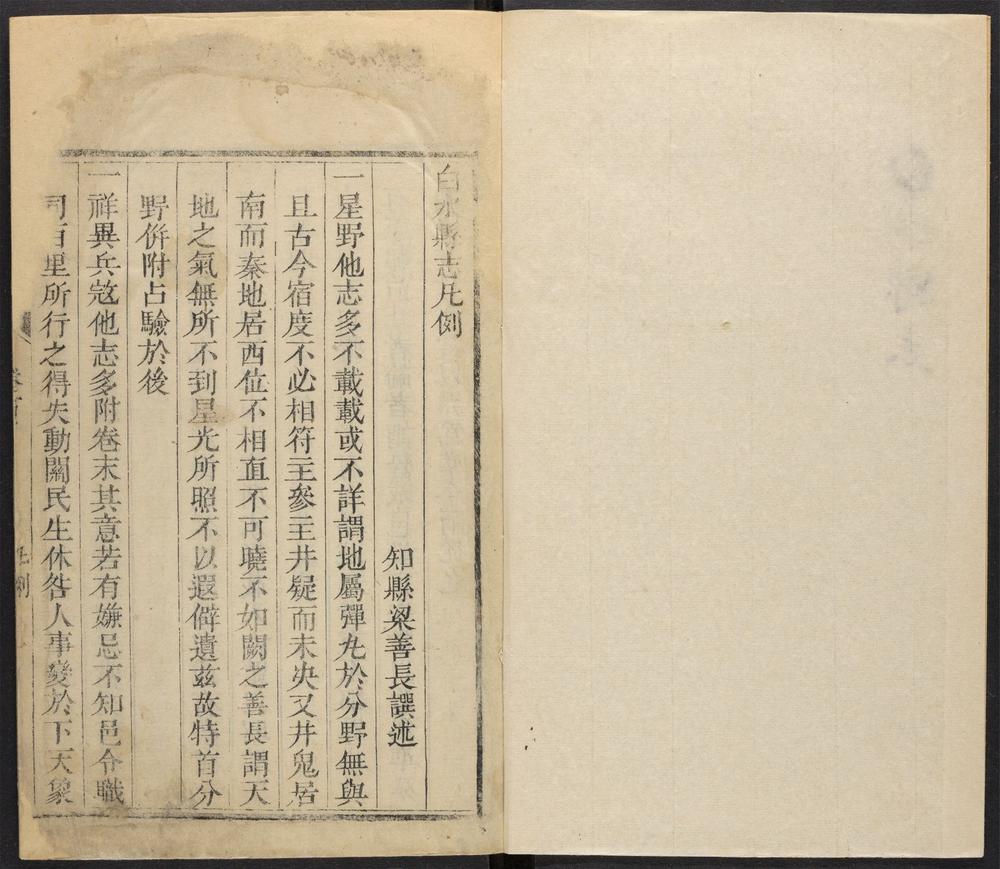 白水縣志凡例
知縣梁善長譔述
一星野他志多不載載或不詳謂地屬彈丸於分野無與
且古今宿度不必相符主參主井疑而未决又井鬼居
南而秦地居西位不相直不可曉不如闕之善長謂天
地之氣無所不到星光所照不以遐僻遺玆故特首分
野倂附占驗於後
一祥異兵寇他志多附卷末其意若有嫌忌不知邑令職
司百里所行之得失動關民生休咎人事變於下天象
卷首
凡例